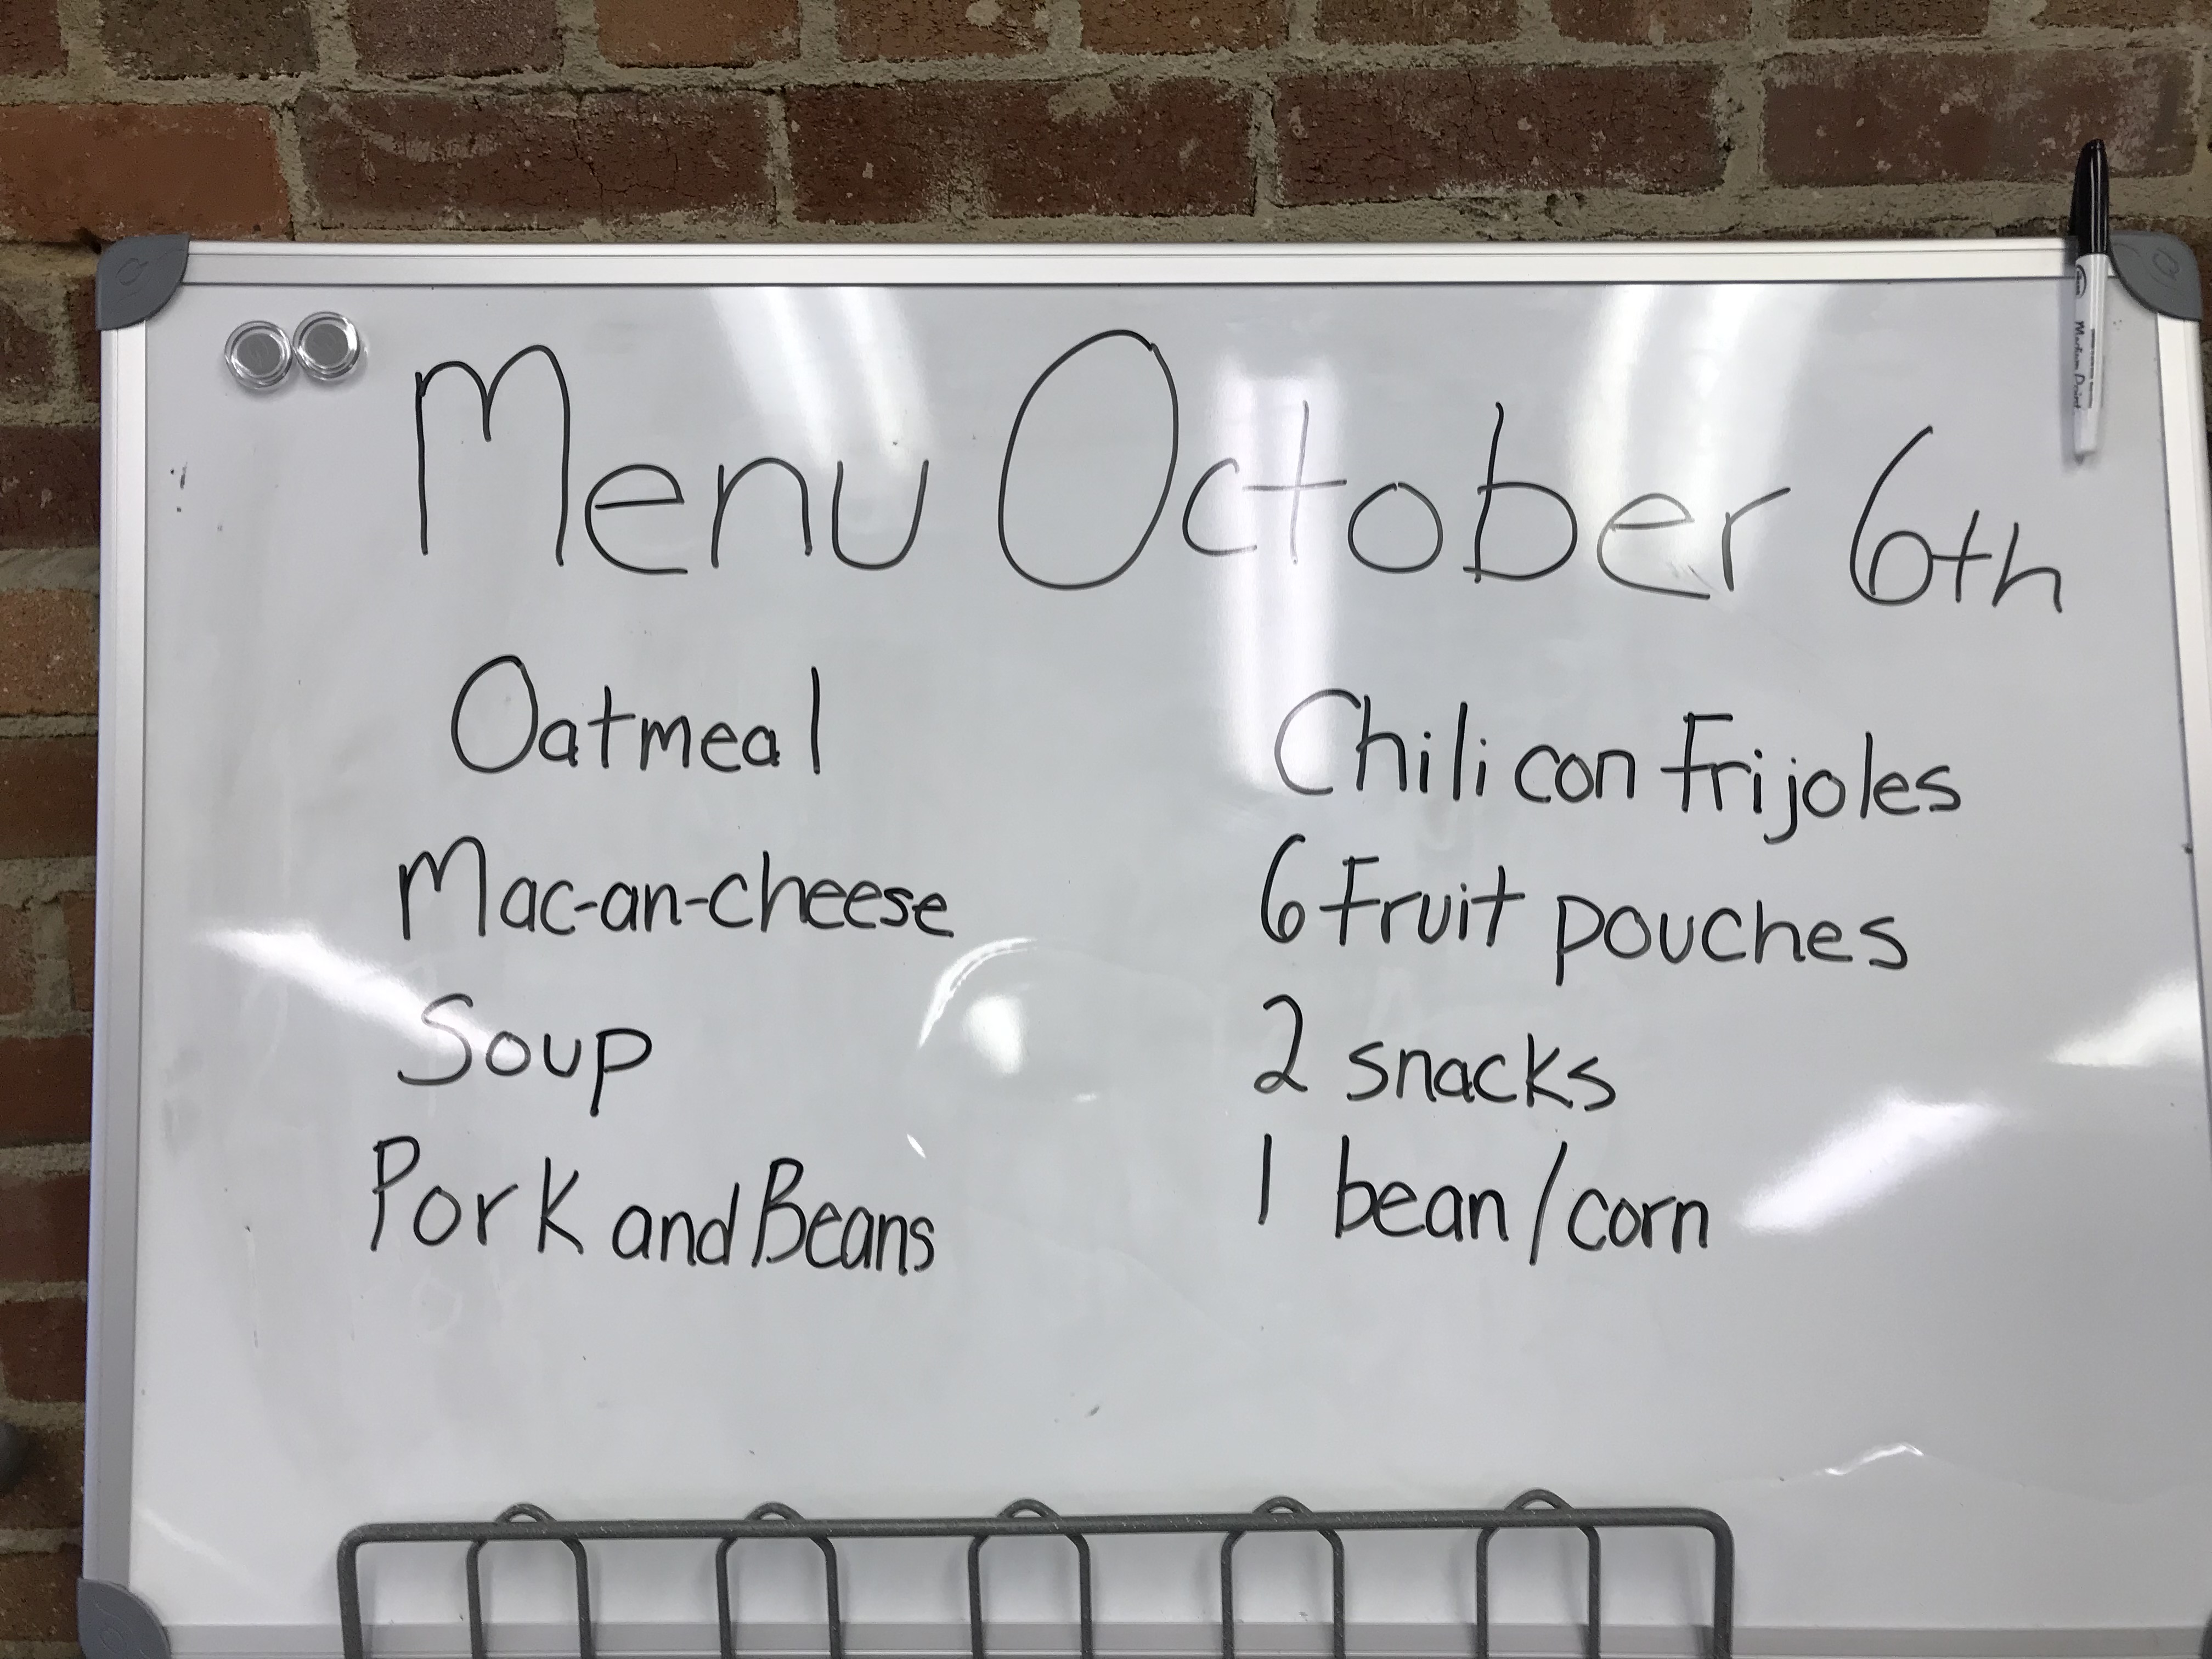 Menu October 6th
Oatmeal
Mac-an-cheese
Soup
Pork and Beans
Chili con frijoles
6 Fruit pouches
2 snacks
1 bean/corn